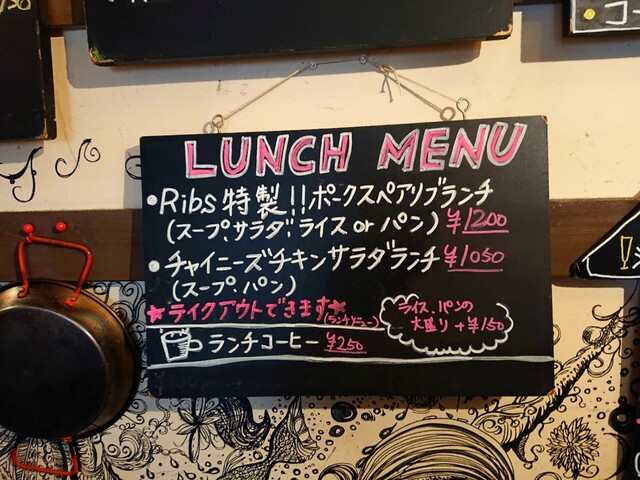 LUNCH MENU
• Ribs 特製!! ポークスペアリブランチ
(スープ、サラダ ライス or パン) ¥1200
• チャイニーズチキンサラダランチ ¥1050
(スープ、パン)
★テイクアウトできます★
(ランチメニュー)
ライス、パンの
大盛り +¥150
ランチコーヒー ¥250